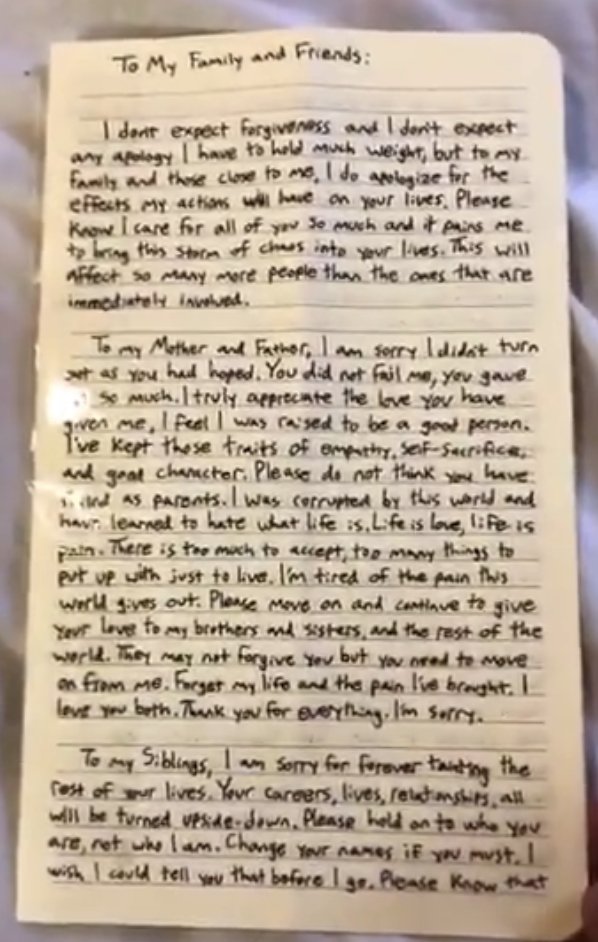 To My Family and Friends:
I dont expect forgiveness and I don't expect
any apology I have to hold much weight, but to my
family and those close to me, I do apologize for the
effects my actions will have on your lives. Please
Know I care for all of you so much and it pains me
to bring this storm of chaos into your lives. This will
affect so many more people than the ones that are
immediately involved.
To my Mother and Father, I am sorry I didn't turn
as you had hoped. You did not fail me, you gave
so much. I truly appreciate the love you have
given me, I feel I was raised to be a good person.
I've kept those traits of empathy, self-sacrifice,
and good character. Please do not think you have
as parents. I was corrupted by this world and
have learned to hate what life is. Life is love, life is
pain. There is too much to accept, too many things to
put up with just to live. I'm tired of the pain this
world gives out. Please move on and continue to give
your love to my brothers and sisters, and the rest of the
world. They may not forgive you but you need to move
on from me. Forget my life and the pain I've brought. I
love you both. Thank you for everything. I'm sorry.
To my Siblings, I am sorry for forever tainting the
rest of your lives. Your careers, lives, relationships, all
will be turned upside-down. Please hold on to who you
are, not who I am. Change your names if you must. I
wish I could tell you that before I go. Please Know that